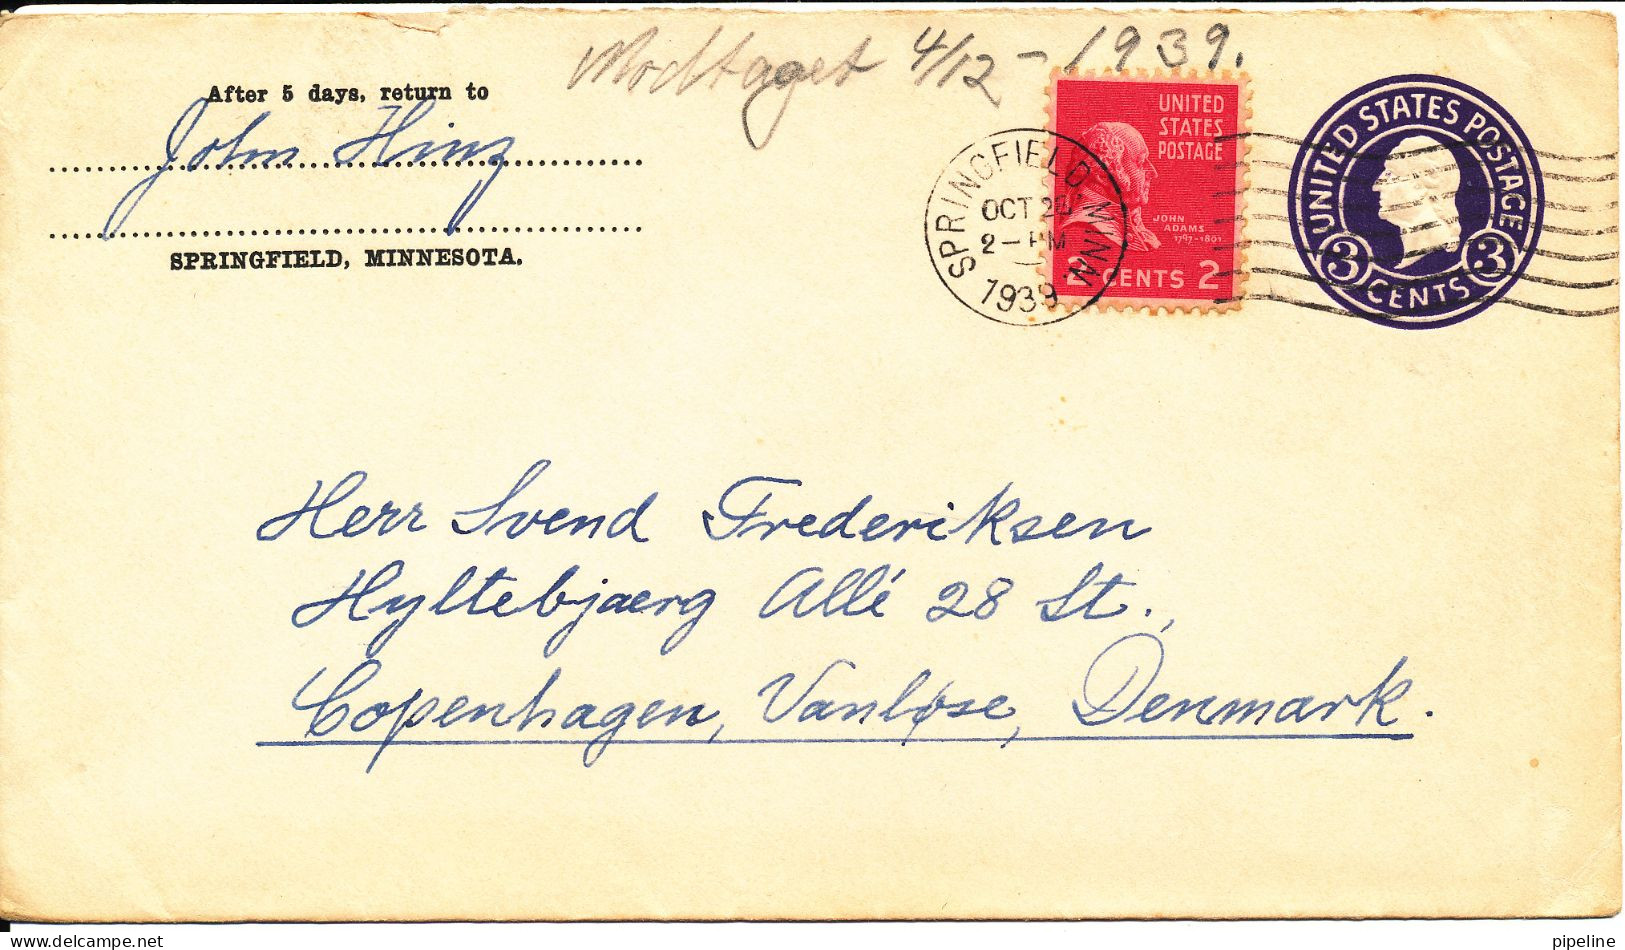 Modtaget 4/12 - 1939.
After 5 days, return to
John Hinz
SPRINGFIELD, MINNESOTA.
SPRINGFIELD MINN.
OCT
2 - PM
1939
UNITED
STATES
POSTAGE
JOHN
ADAMS
1797-1801
2 CENTS 2
UNITED STATES POSTAGE
3 CENTS 3
Herr Svend Frederiksen
Hyltebjaerg Allé 28 St.,
Copenhagen, Vanløse, Denmark.
pipeline